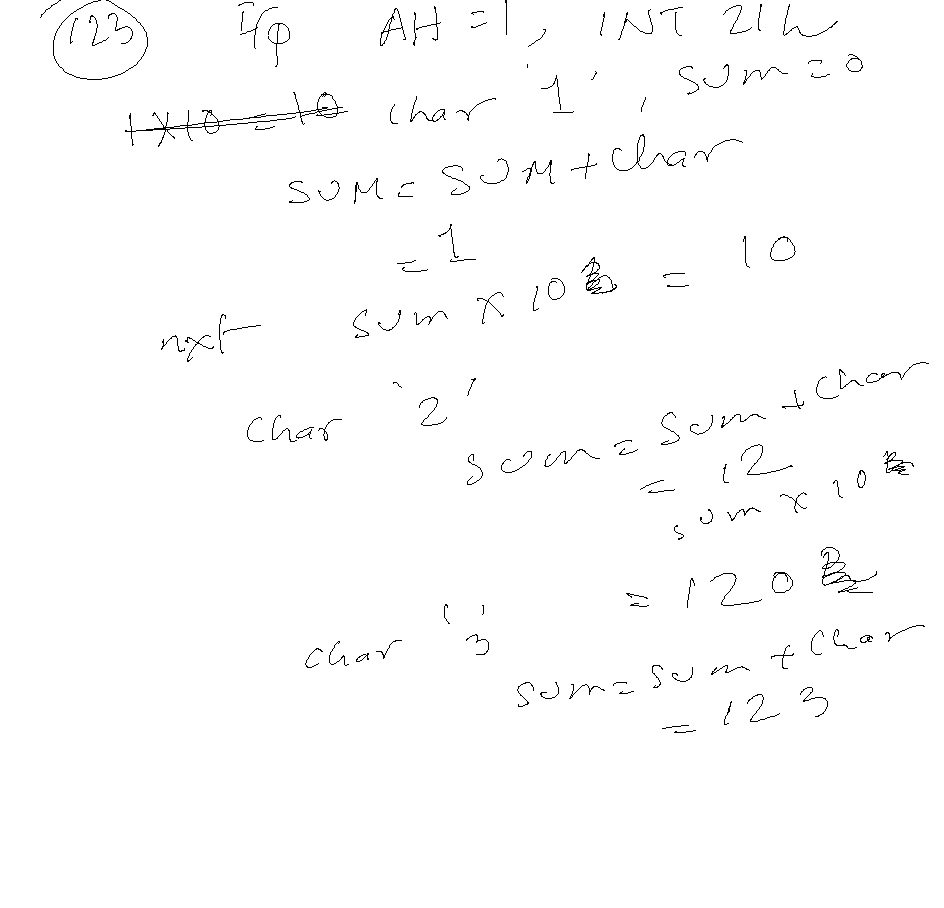 123 I/p AH = 1, INT 21h
1×10 = 10 char '1', sum = 0
SUM = SUM + char
= 1
nxt sum × 10 = 10
char '2'
sum = sum + char
= 12
sum × 10
= 120
char '3'
sum = sum + char
= 123